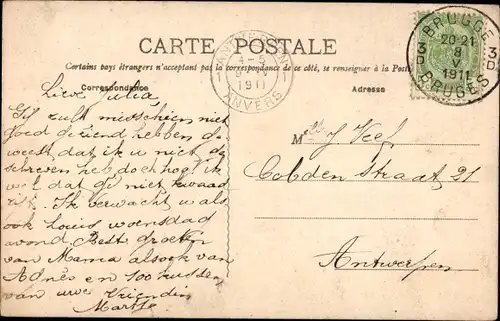 CARTE POSTALE
Certains pays étrangers n'acceptant pas la correspondance de ce côté, se renseigner à la Poste
Correspondance
Adresse
BRUGGE
20-21
8
V
1911
BRUGES
3D
3D
ANVERS
Lieve Julia
Gij zult misschien niet
goed gediend hebben
weest dat ik u niet
schreven heb doch hoop ik
wel dat gij niet kwaad
zijt. Ik verwacht u als
ook Louis woensdag
avond. Beste groeten
van Mama alsook van
Agnes en 100 kussen
van uwe Vriendin
Marthe
Melle J
Cobden Straat 21
Antwerpen